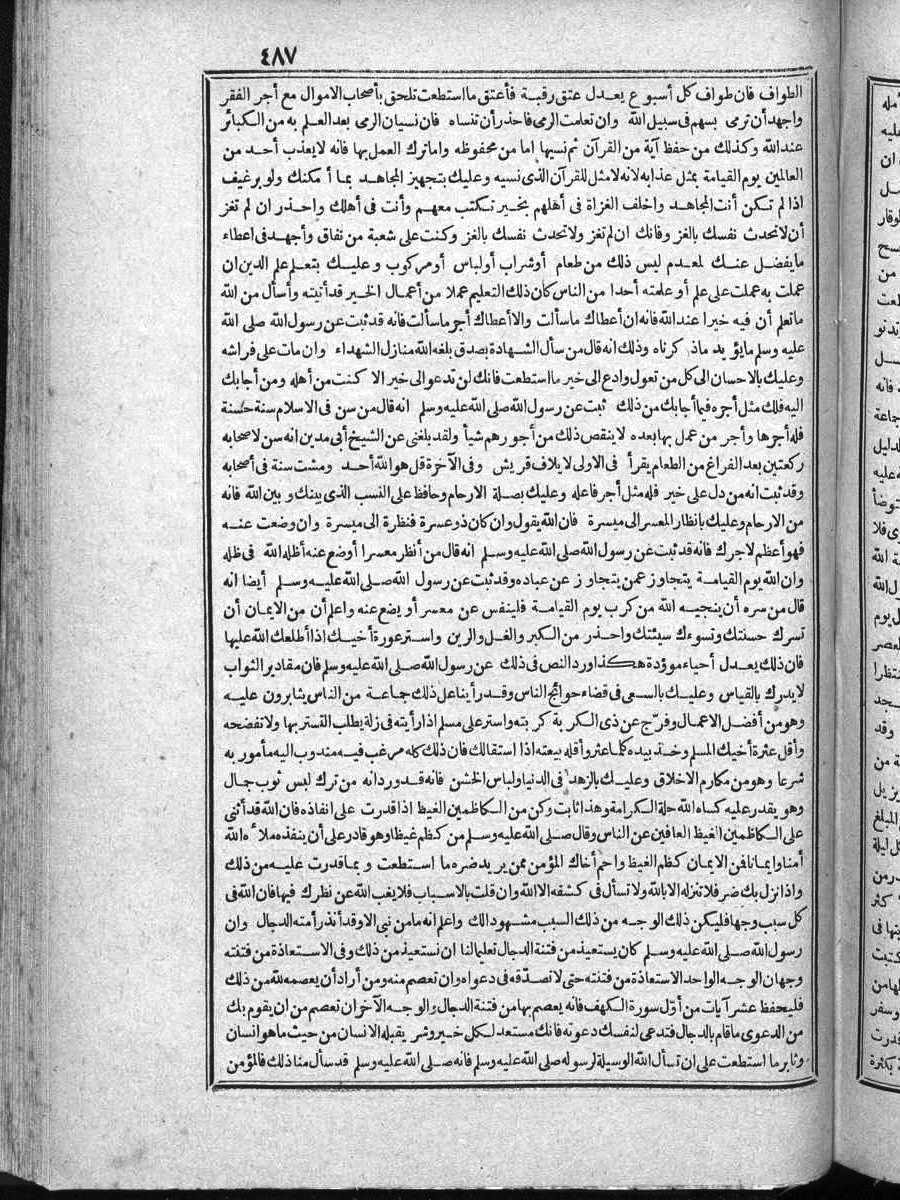 ٤٨٧
الطواف فان طواف كل أسبوع يعدل عتق رقبة فأعتق ما استطعت تلحق بأصحاب الاموال مع أجر الفقر
واجهد أن ترمى بسهم فى سبيل الله وان تعلمت الرمى فاحذر أن تنساه فان نسيان الرمى بعد العلم به من الكبائر
عند الله وكذلك من حفظ آية من القرآن ثم نسيها اما من محفوظه واما ترك العمل بها فانه لا يعذب أحد من
العالمين يوم القيامة بمثل عذابه لانه لا مثل للقرآن الذى نسيه وعليك بتجهيز المجاهد بما أمكنك ولو برغيف
اذا لم تكن أنت المجاهد واخلف الغزاة فى أهلهم بخير تكتب معهم وأنت فى أهلك واحذر ان لم تغز
أن لا تحدث نفسك بالغزو فانك ان لم تغز ولا تحدث نفسك بالغز وكنت على شعبة من نفاق وأجهد فى اعطاء
ما يفضل عنك لمعدم ليس ذلك من طعام أو شراب أو لباس أو مركوب وعليك بتعلم علم الدين ان
عملت به عملت على علم أو علمته أحدا من الناس كان ذلك التعليم عملا من أعمال الخير قد أتيته وأسأل من الله
ما تعلم أن فيه خيرا عند الله فانه ان أعطاك ما سألت والا أعطاك أجر ما سألت فانه قد ثبت عن رسول الله صلى الله
عليه وسلم ما يؤيد ما ذكرناه وذلك انه قال من سأل الشهادة بصدق بلغه الله منازل الشهداء وان مات على فراشه
وعليك بالاحسان الى كل من تعول وادع الى خير ما استطعت فانك لن تدعو الى خير الا كنت من أهله ومن أجابك
اليه فلك مثل أجره فيما أجابك من ذلك ثبت عن رسول الله صلى الله عليه وسلم انه قال من سن فى الاسلام سنة حسنة
فله أجرها وأجر من عمل بها بعده لا ينقص ذلك من أجورهم شيأ ولقد بلغنى عن الشيخ أبى مدين انه سن لاصحابه
ركعتين بعد الفراغ من الطعام يقرأ فى الاولى لايلاف قريش وفى الآخرة قل هو الله أحد ومشت سنة فى أصحابه
وقد ثبت انه من دل على خير فله مثل أجر فاعله وعليك بصلة الارحام وحافظ على النسب الذى بينك وبين الله فانه
من الارحام وعليك بانظار المعسر الى ميسرة فان الله يقول وان كان ذو عسرة فنظرة الى ميسرة وان وضعت عنه
فهو أعظم لاجرك فانه قد ثبت عن رسول الله صلى الله عليه وسلم انه قال من أنظر معسرا أوضع عنه أظله الله فى ظله
وان الله يوم القيامة يتجاوز عمن يتجاوز عن عباده وقد ثبت عن رسول الله صلى الله عليه وسلم أيضا انه
قال من سره أن ينجيه الله من كرب يوم القيامة فلينفس عن معسر أو يضع عنه واعلم أن من الايمان أن
تسرك حسنتك وتسوءك سيئتك واحذر من الكبر والغل والرين واستر عورة أخيك اذا أطلعك الله عليها
فان ذلك يعدل أحياء موؤدة هكذا ورد النص فى ذلك عن رسول الله صلى الله عليه وسلم فان مقادير الثواب
لا يدرك بالقياس وعليك بالسعى فى قضاء حوائج الناس وقد رأينا على ذلك جماعة من الناس يثابرون عليه
وهو من أفضل الاعمال وفرّج عن ذى الكربة كربته واستر على مسلم اذا رأيته فى زلة يطلب التستر بها ولا تفضحه
وأقل عثرة أخيك المسلم وخذ بيده كلما عثر وأقله بيعته اذا استقالك فان ذلك كله مرغب فيه مندوب اليه مأمور به
شرعا وهو من مكارم الاخلاق وعليك بالزهد فى الدنيا ولباس الخشن فانه قد ورد انه من ترك لبس ثوب جمال
وهو يقدر عليه كساه الله حلة الكرامة وهذا ثابت وكن من الكاظمين الغيظ اذا قدرت على انفاذه فان الله قد أثنى
على الكاظمين الغيظ العافين عن الناس وقال صلى الله عليه وسلم من كظم غيظا وهو قادر على أن ينفذه ملأه الله
أمنا وايمانا فن الايمان كظم الغيظ واحم أخاك المؤمن ممن يريد ضره ما استطعت وبما قدرت عليه من ذلك
واذا نزل بك ضر فلا تنزله الا بالله ولا تسأل فى كشفه الا الله وان قلت بالاسباب فلا يغب الله عن نظرك فيها فان الله فى
كل سبب وجها فليكن ذلك الوجه من ذلك السبب مشهودا لك واعلم انه ما من نبى الا وقد أنذر أمته الدجال وان
رسول الله صلى الله عليه وسلم كان يستعيذ من فتنة الدجال تعليما لنا ان نستعيذ من ذلك وفى الاستعاذة من فتنته
وجهان الوجه الواحد الاستعاذة من فتنته حتى لا تصدّقه فى دعواه وان تعصم منه ومن أراد أن يعصمه لله من ذلك
فليحفظ عشر آيات من أوّل سورة الكهف فانه يعصم بها من فتنة الدجال والوجه الآخر ان تعصم من ان يقوم بك
من الدعوى ما قام بالدجال فتدعى لنفسك دعوته فانك مستعد لكل خير وشر يقبله الانسان من حيث ما هو انسان
وثابر ما استطعت على ان تسأل الله الوسيلة لرسوله صلى الله عليه وسلم فانه صلى الله عليه وسلم قد سأل منا ذلك فالمؤمن